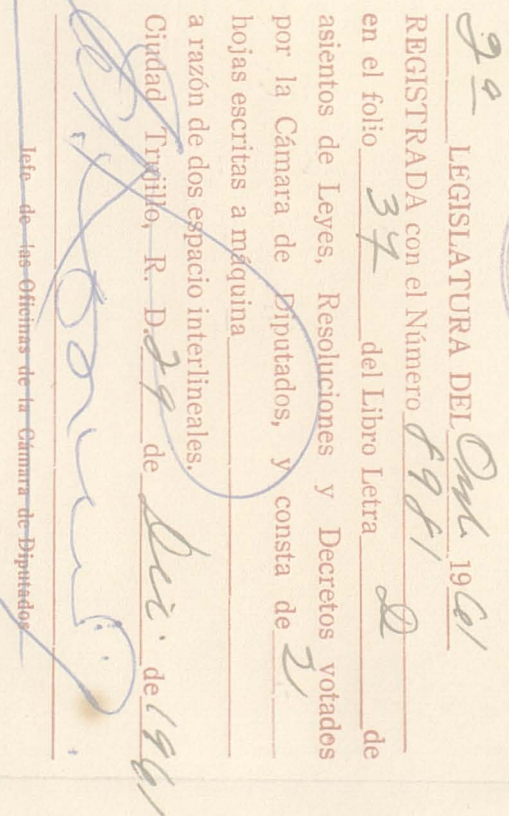 2ª LEGISLATURA DEL Ord. 1961
REGISTRADA con el Número 8981
en el folio 34 del Libro Letra D de
asientos de Leyes, Resoluciones y Decretos votados
por la Cámara de Diputados, y consta de 2
hojas escritas a máquina
a razón de dos espacio interlineales.
Ciudad Trujillo, R. D. 29 de Dic. de 1961
Jefe de las Oficinas de la Cámara de Diputados